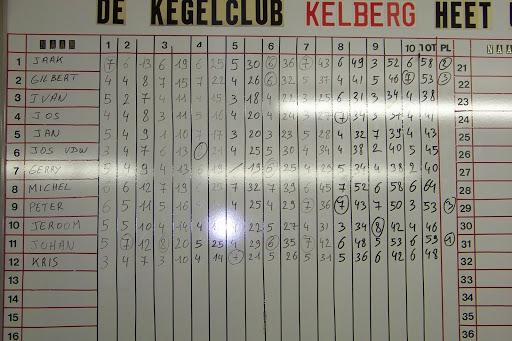 DE KEGELCLUB KELBERG HEET
NAAM 1 2 3 4 5 6 7 8 9 10 TOT PL
1 JAAK 7 6 13 6 19 6 25 5 30 6 36 7 43 6 49 3 52 6 58 2 21
2 GILBERT 4 4 8 7 15 7 22 4 26 6 32 5 37 4 41 5 46 7 53 3 22
3 IVAN 5 2 7 4 11 4 15 3 18 4 31 3 34 4 38 23
4 JOS 4 4 8 3 11 5 16 4 20 4 24 7 34 3 24
5 JAN 5 4 9 1 10 7 17 3 20 3 23 5 28 4 32 7 39 4 43 25
6 JOS VDW 3 4 7 6 13 4 25 5 30 4 34 4 38 2 40 5 45 26
7 GERRY 5 4 9 4 13 19 6 25 4 29 5 34 4 38 2 40 27
8 MICHEL 6 6 12 7 19 25 7 32 7 39 6 45 7 52 6 58 6 64 28
9 PETER 6 5 11 5 16 4 25 4 29 7 36 7 43 7 50 3 53 29
10 JEROOM 5 5 10 4 14 22 5 27 4 31 3 34 8 42 4 46 30
11 JOHAN 5 7 12 8 20 5 25 4 29 6 35 7 42 6 48 5 53 6 59 1 31
12 KRIS 3 4 7 3 10 4 14 7 21 5 26 5 31 5 36 6 42 6 48 32
13 33
14 34
15 35
16 36